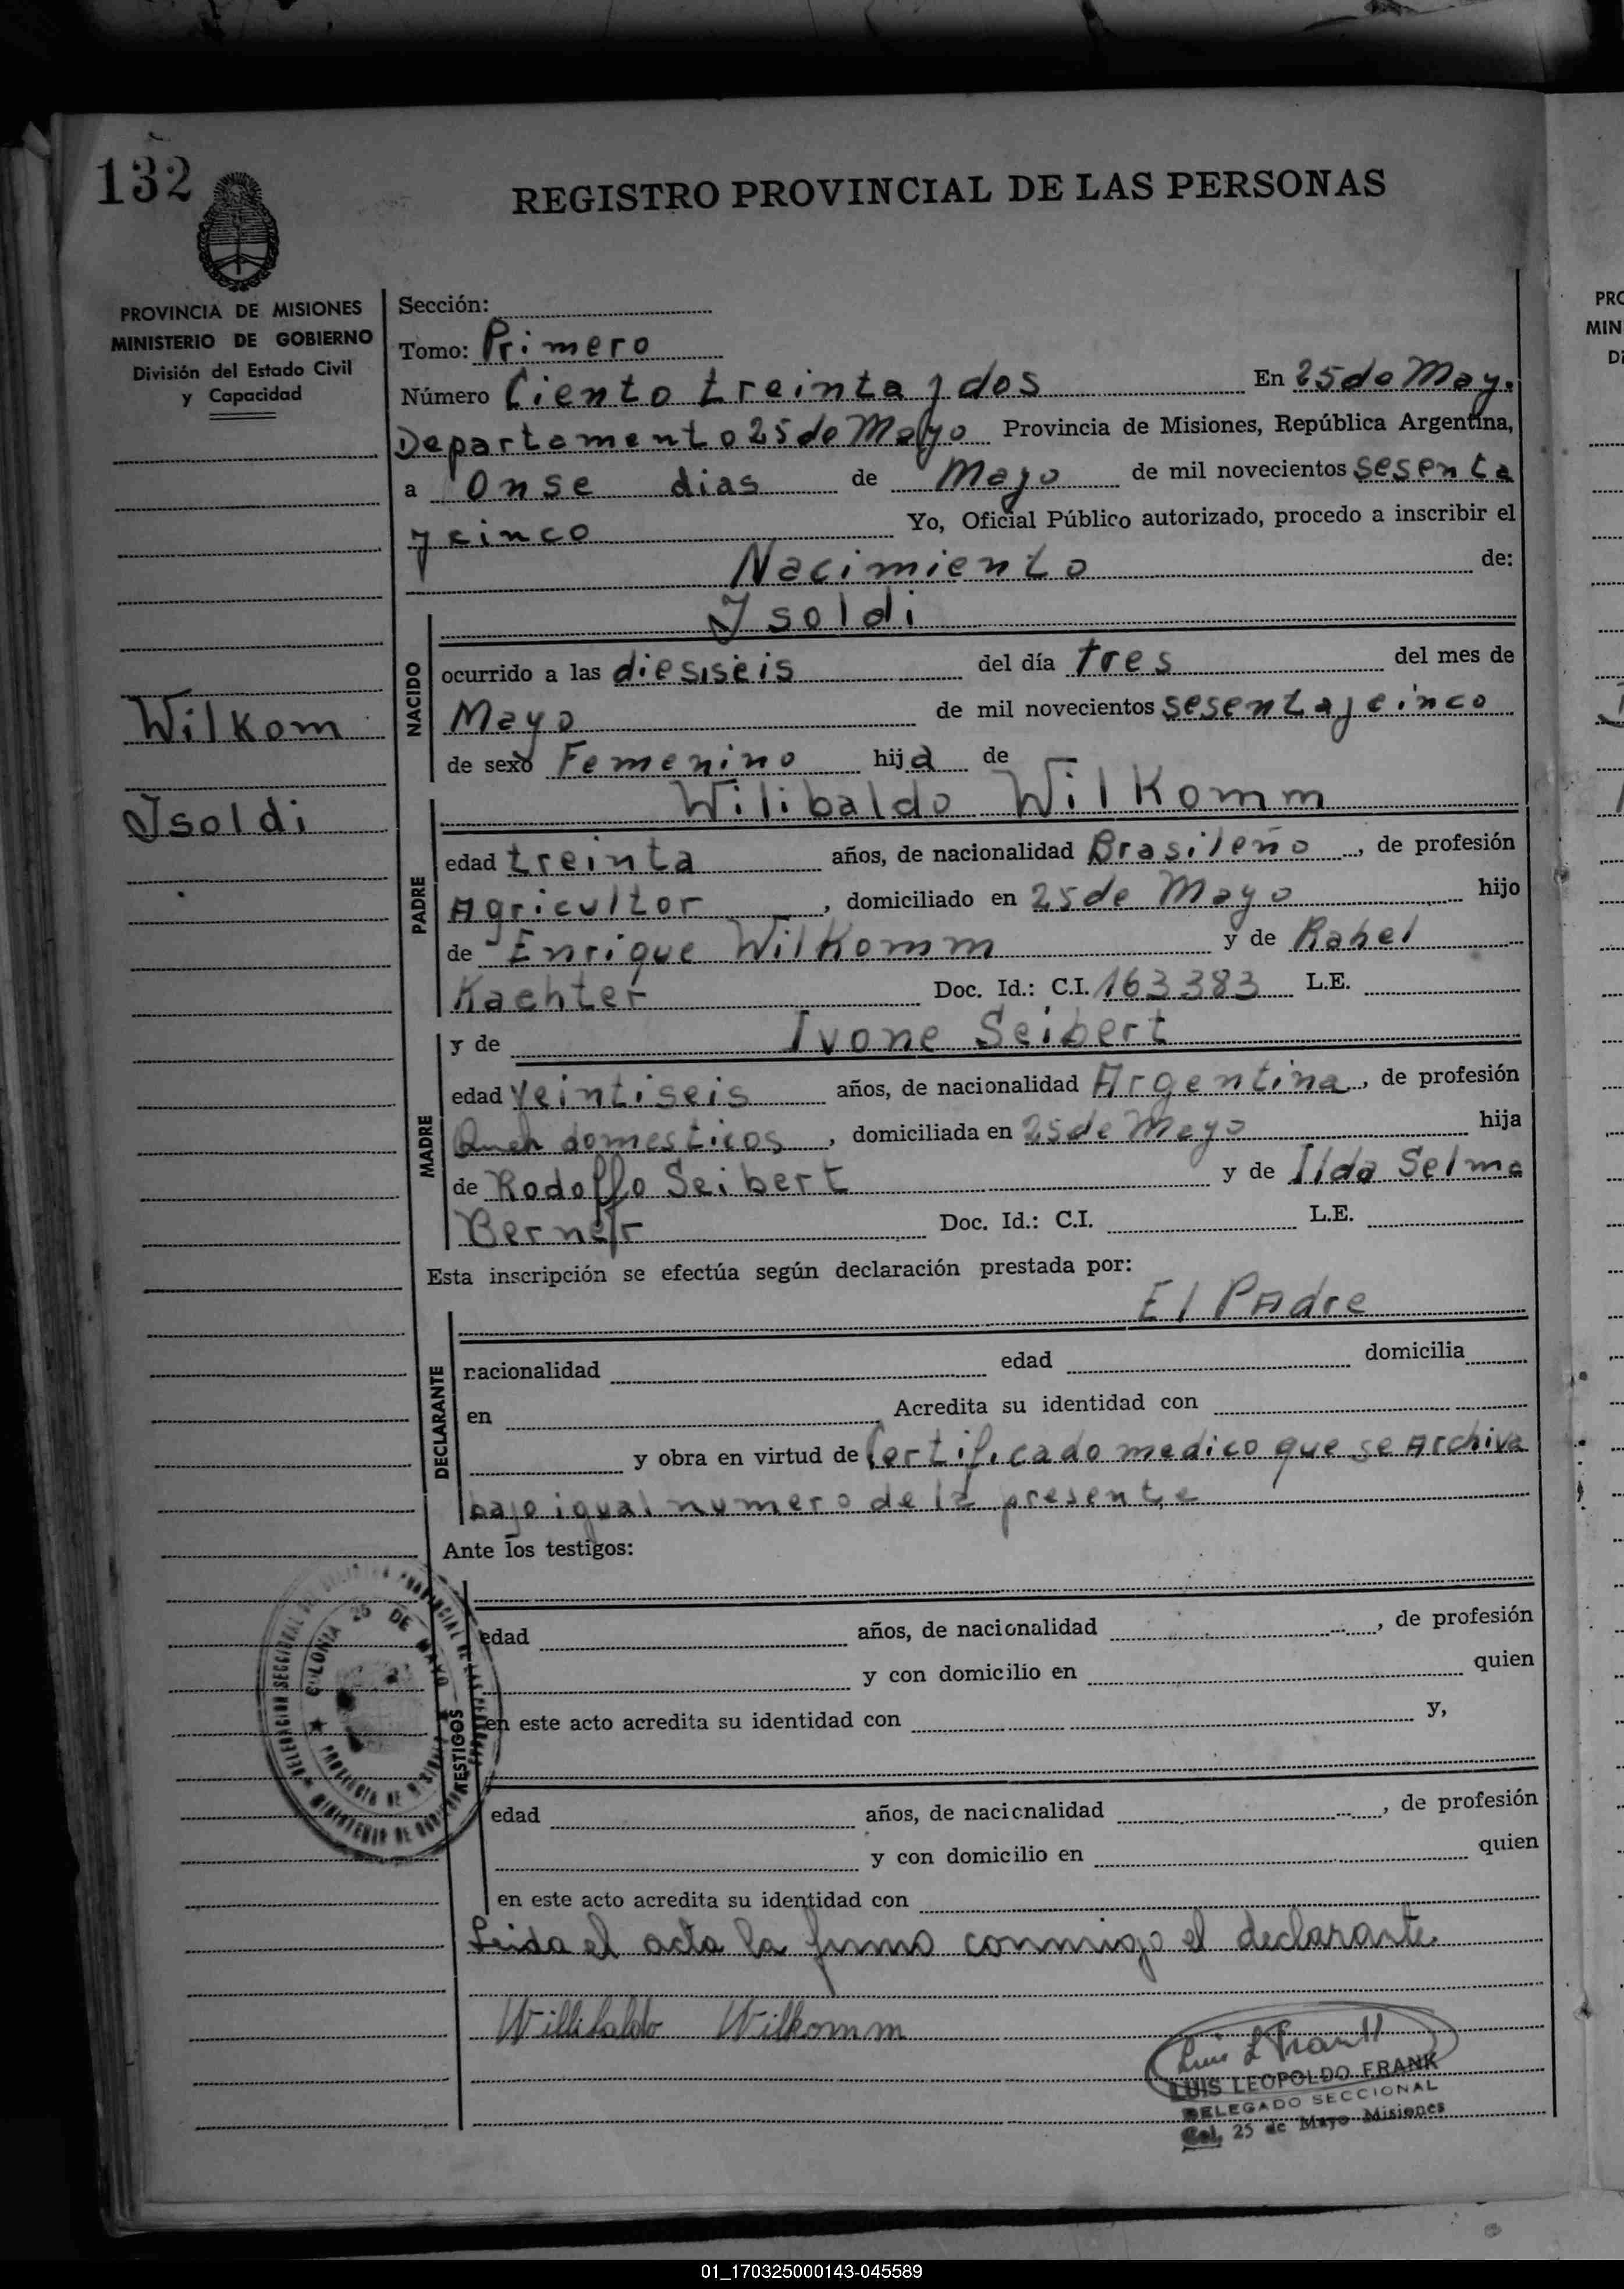 132
REGISTRO PROVINCIAL DE LAS PERSONAS
PROVINCIA DE MISIONES
MINISTERIO DE GOBIERNO
División del Estado Civil
y Capacidad
Wilkom
Isoldi
Sección:
Tomo: Primero
Número Ciento treinta y dos En 25 de May.
Departamento 25 de Mayo Provincia de Misiones, República Argentina,
a Onse dias de Mayo de mil novecientos sesenta
y cinco Yo, Oficial Público autorizado, procedo a inscribir el
Nacimiento de:
Isoldi
NACIDO
ocurrido a las diesiseis del día tres del mes de
Mayo de mil novecientos sesenta y cinco
de sexo Femenino hija de
Wilibaldo Wilkomm
PADRE
edad treinta años, de nacionalidad Brasileño, de profesión
Agricultor, domiciliado en 25 de Mayo hijo
de Enrique Wilkomm y de Rahel
Kaehter Doc. Id.: C.I. 163383 L.E.
y de Ivone Seibert
MADRE
edad veintiseis años, de nacionalidad Argentina, de profesión
Queh domesticos, domiciliada en 25 de Mayo hija
de Rodolfo Seibert y de Ilda Selma
Doc. Id.: C.I. L.E.
Esta inscripción se efectúa según declaración prestada por:
El Padre
DECLARANTE
nacionalidad edad domicilia
en Acredita su identidad con
y obra en virtud de Certificado medico que se Archiva
bajo igual numero de la presente
Ante los testigos:
TESTIGOS
edad años, de nacionalidad , de profesión
y con domicilio en quien
en este acto acredita su identidad con y,
edad años, de nacionalidad , de profesión
y con domicilio en quien
en este acto acredita su identidad con
COLONIA 25 DE MAYO
PROVINCIA DE MISIONES
Leida el acta la firmo conmigo el declarante.
Willibaldo Wilkomm
Luis L Frank
LUIS LEOPOLDO FRANK
DELEGADO SECCIONAL
Col. 25 de Mayo Misiones
PRO
MIN
Di
01_170325000143-045589